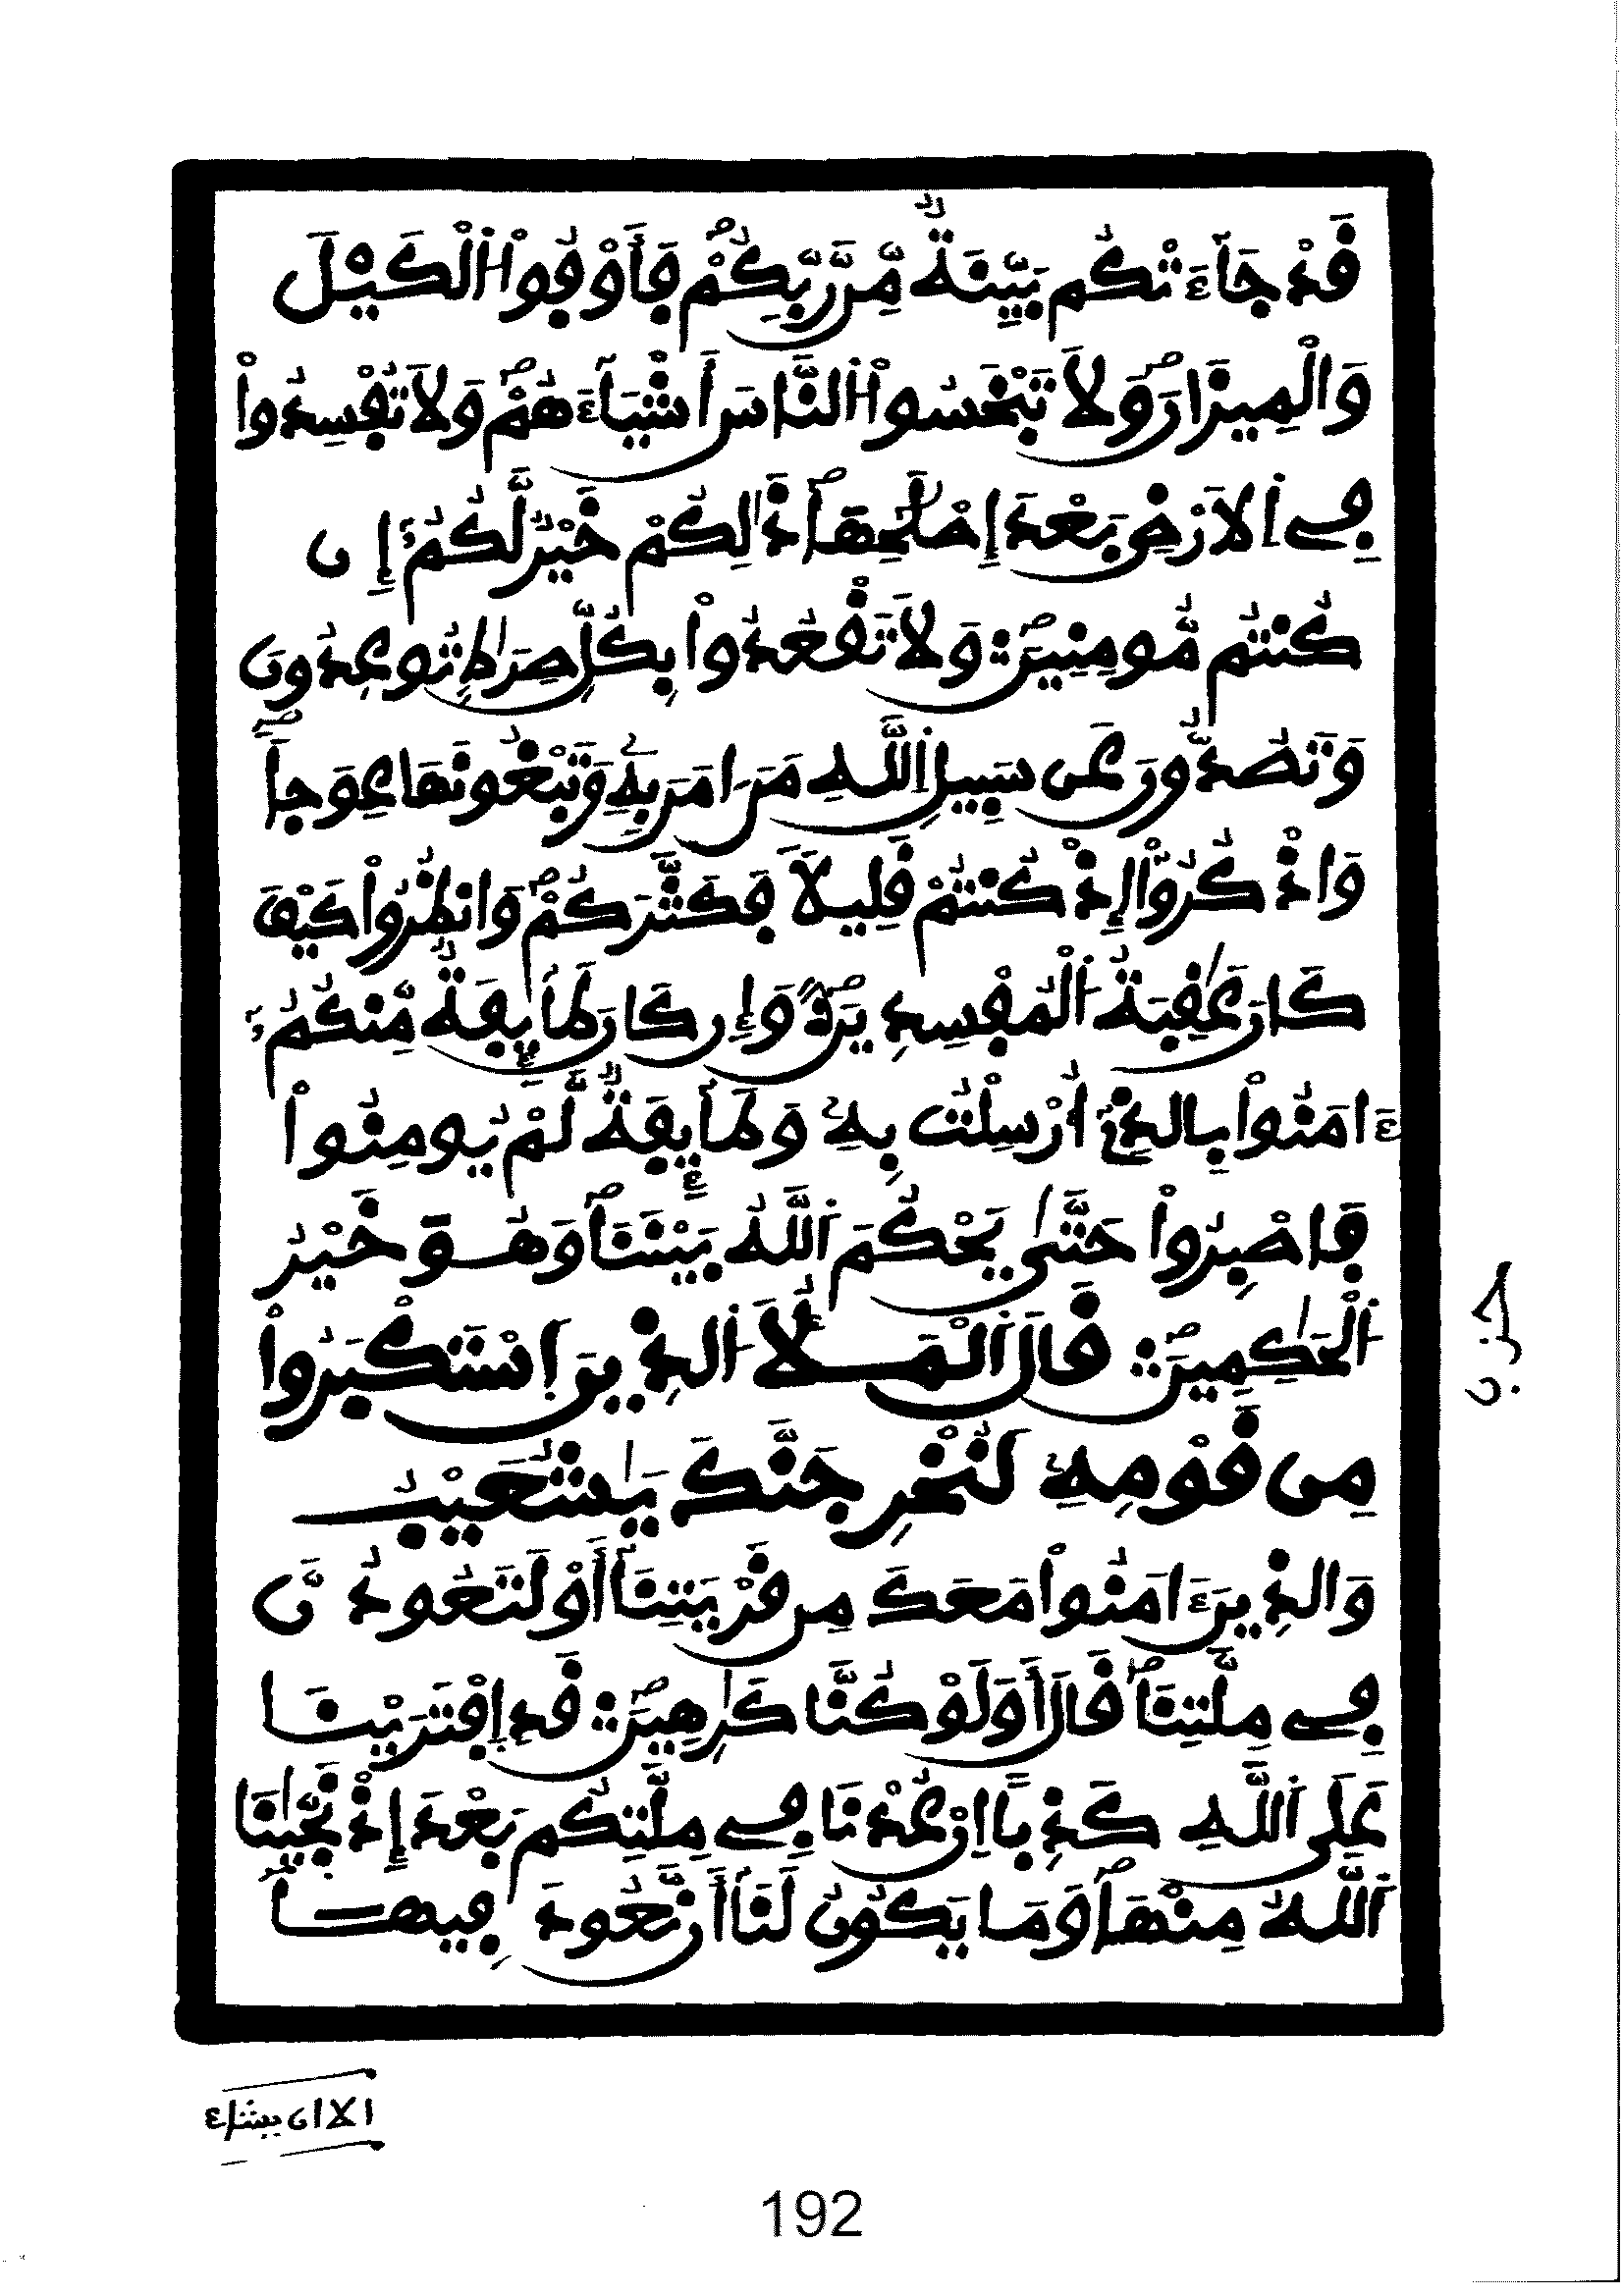 قَدْ جَآءَتْكُم بَيِّنَةٌ مِّن رَّبِّكُمْ فَأَوْفُواْ اُلْكَيْلَ
وَالْمِيزَانَ وَلَا تَبْخَسُواْ اُلنَّاسَ أَشْيَآءَهُمْ وَلَا تُفْسِدُواْ
فِي اِلَارْضِ بَعْدَ إِصْلَٰحِهَا ذَٰلِكُمْ خَيْرٌ لَّكُمُۥٓ إِن
كُنتُم مُّومِنِينَ وَلَا تَقْعُدُواْ بِكُلِّ صِرَٰطٍ تُوعِدُونَ
وَتَصُدُّونَ عَن سَبِيلِ اِللَّهِ مَنَ اٰمَنَ بِهِۦ وَتَبْغُونَهَا عِوَجاً
وَاذْكُرُوٓاْ إِذْ كُنتُمْ قَلِيلاً فَكَثَّرَكُمْ وَانظُرُواْ كَيْفَ
كَانَ عَٰقِبَةُ اُلْمُفْسِدِينَ وَإِن كَانَ طَآئِفَةٌ مِّنكُمُۥٓ
ءَامَنُواْ بِالذِےٓ أُرْسِلْتُ بِهِۦ وَطَآئِفَةٌ لَّمْ يُومِنُواْ
فَاصْبِرُواْ حَتَّىٰ يَحْكُمَ اَللَّهُ بَيْنَنَا وَهُوَ خَيْرُ
اُلْحَٰكِمِينَ قَالَ اَلْمَلَأُ اُلذِينَ اَسْتَكْبَرُواْ
مِن قَوْمِهِۦ لَنُخْرِجَنَّكَ يَٰشُعَيْبُ
وَالذِينَ ءَامَنُواْ مَعَكَ مِن قَرْيَتِنَآ أَوْ لَتَعُودُنَّ
فِي مِلَّتِنَا قَالَ أَوَلَوْ كُنَّا كَٰرِهِينَ قَدِ اِفْتَرَيْنَا
عَلَى اَللَّهِ كَذِباً اِنْ عُدْنَا فِي مِلَّتِكُم بَعْدَ إِذْ نَجَّيٰنَا
اَللَّهُ مِنْهَا وَمَا يَكُونُ لَنَآ أَن نَّعُودَ فِيهَآ
حزب
الا ان يشاء
192